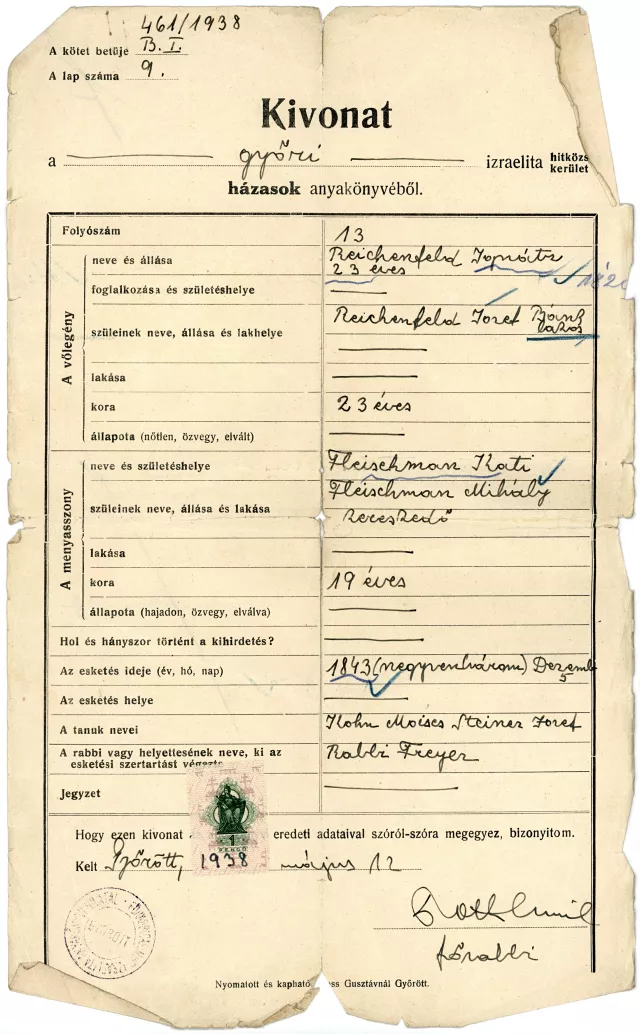 461/1938
A kötet betűje B. I.
A lap száma 9.
Kivonat
a győri izraelita hitközs
kerület
házasok anyakönyvéből.
Folyószám 13
A vőlegény
neve és állása Reichenfeld Ignátz
23 éves
foglalkozása és születéshelye
szüleinek neve, állása és lakhelye Reichenfeld Josef
lakása
kora 23 éves
állapota (nőtlen, özvegy, elvált)
A menyasszony
neve és születéshelye Fleischman Kati
szüleinek neve, állása és lakása Fleischman Mihály
kereskedő
lakása
kora 19 éves
állapota (hajadon, özvegy, elválva)
Hol és hányszor történt a kihirdetés?
Az esketés ideje (év, hó, nap) 1843 (negyvenhárom) Dezemb
5
Az esketés helye
A tanuk nevei Kohn Moises Steiner Josef
A rabbi vagy helyettesének neve, ki az
esketési szertartást végezte Rabbi Freyer
Jegyzet
1
PENGŐ
Hogy ezen kivonat eredeti adataival szóról-szóra megegyez, bizonyitom.
Kelt Győrött, 1938 május 12
Roth Emil
főrabbi
Nyomatott és kapható ss Gusztávnál Győrött.